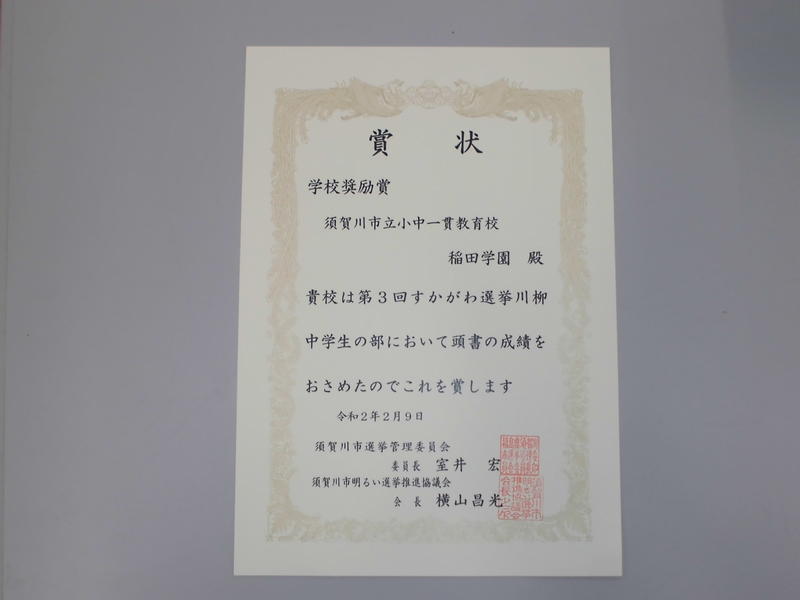 賞状
学校奨励賞
須賀川市立小中一貫教育校
稲田学園 殿
貴校は第3回すかがわ選挙川柳
中学生の部において頭書の成績を
おさめたのでこれを賞します
令和2年2月9日
須賀川市選挙管理委員会
委員長 室井 宏
須賀川市明るい選挙推進協議会
会長 横山昌光